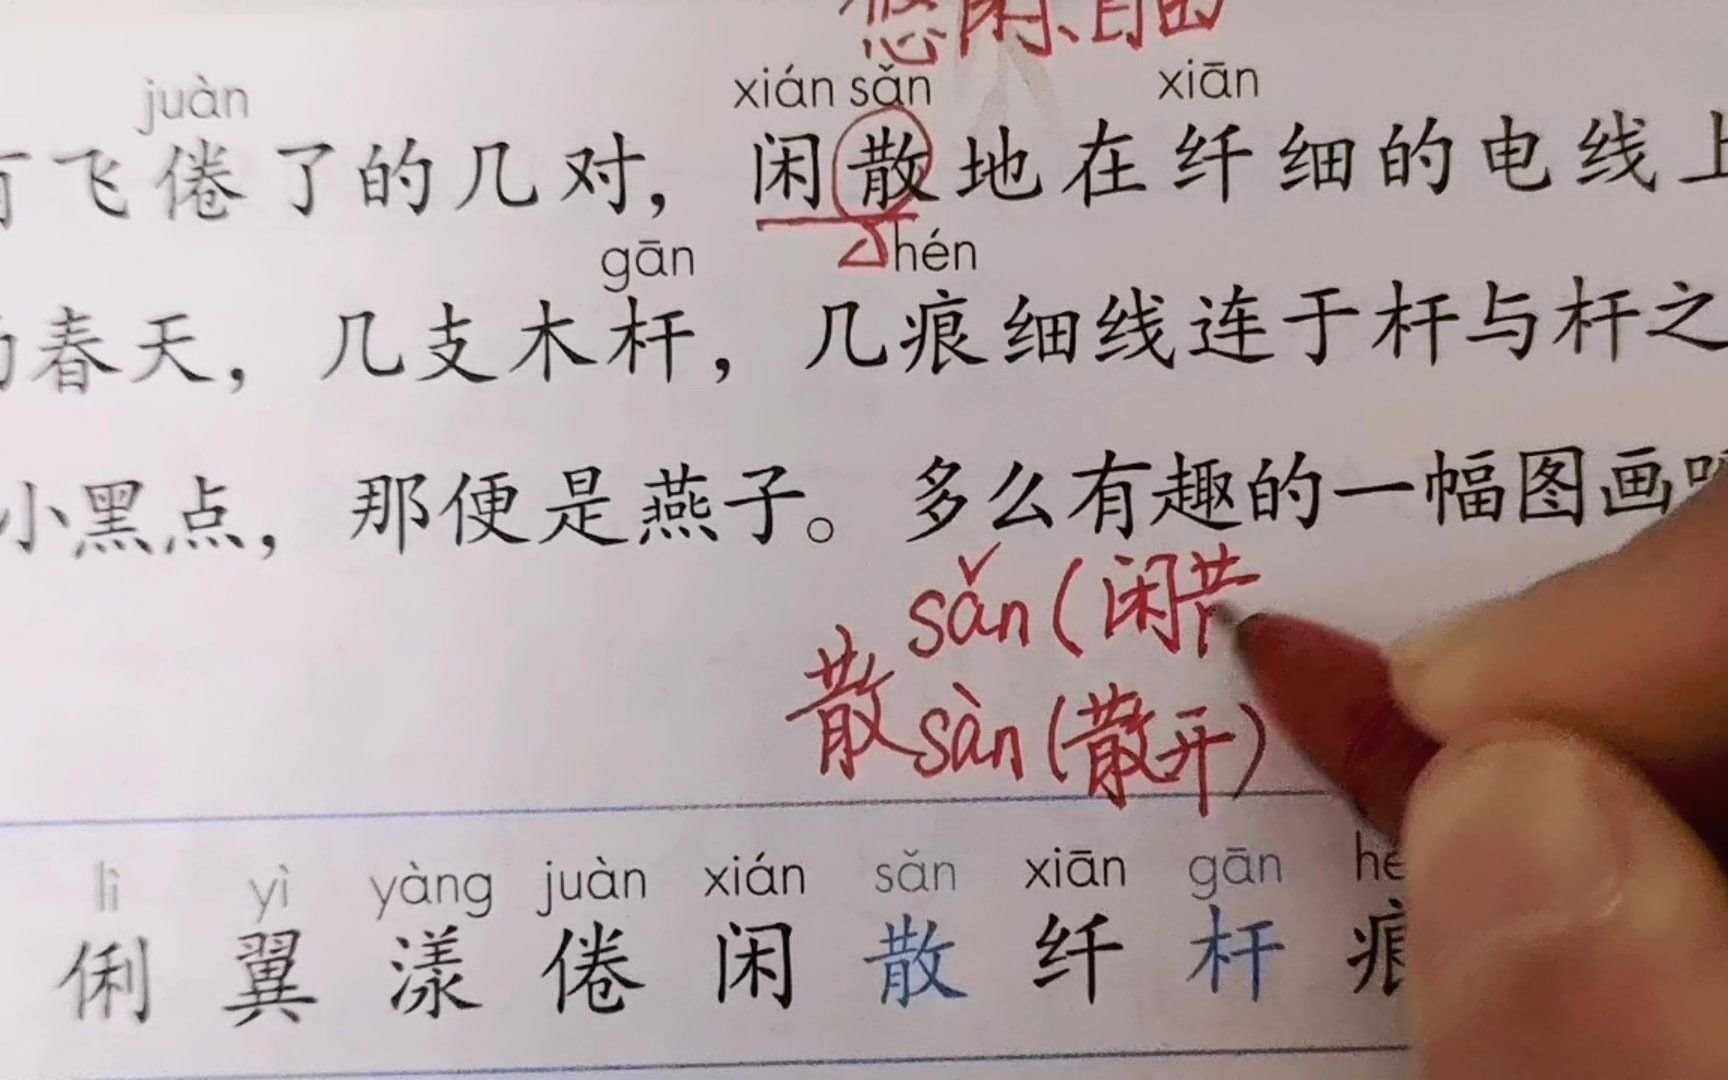 悠闲、自由
juàn xián sǎn xiān
飞倦了的几对，闲散地在纤细的电线上
gān hén
春天，几支木杆，几痕细线连于杆与杆之
小黑点，那便是燕子。多么有趣的一幅图画
sǎn（闲
散
sàn（散开）
lì yì yàng juàn xián sǎn xiān gān
俐 翼 漾 倦 闲 散 纤 杆 痕